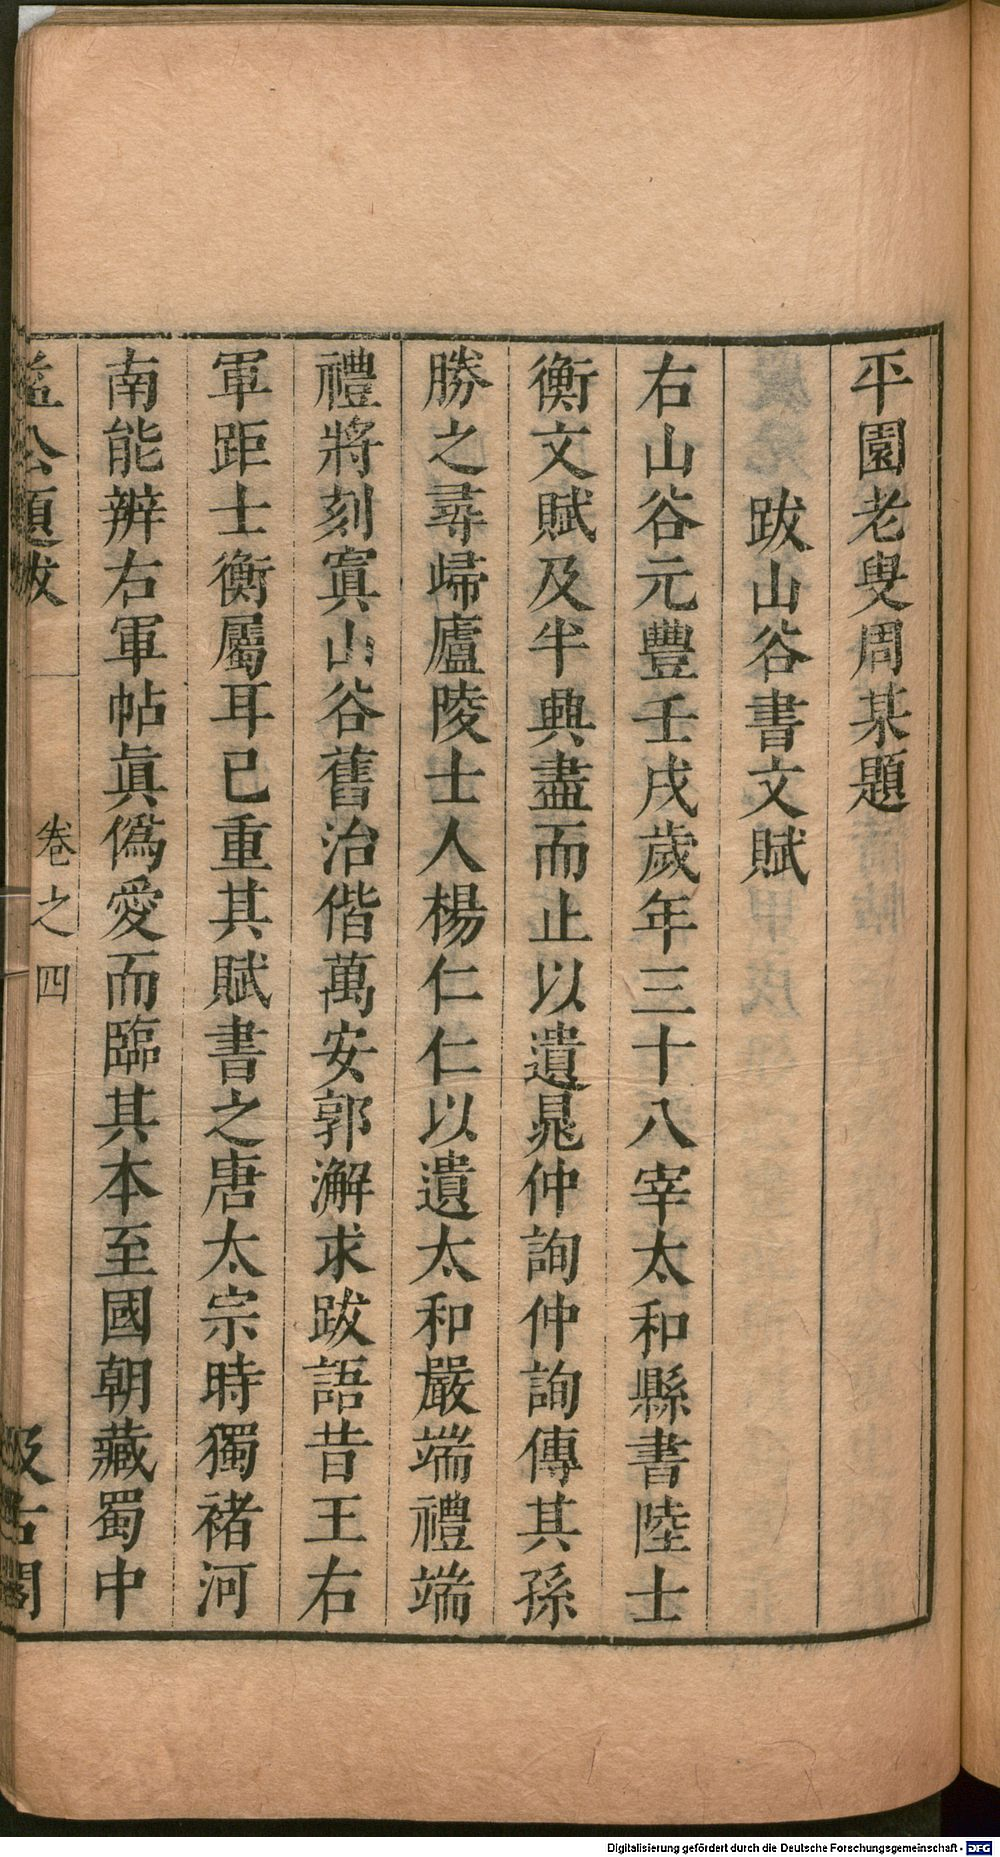 平園老叟周某題
跋山谷書文賦
右山谷元豐壬戌歲年三十八宰太和縣書陸士
衡文賦及半興盡而止以遺晁仲詢仲詢傳其孫
勝之尋歸廬陵士人楊仁仁以遺太和嚴端禮端
禮將刻寘山谷舊治偕萬安郭澥求跋語昔王右
軍距士衡屬耳已重其賦書之唐太宗時獨褚河
南能辨右軍帖真僞愛而臨其本至國朝藏蜀中
益公題跋
卷之四
汲古閣
Digitalisierung gefördert durch die Deutsche Forschungsgemeinschaft - DFG